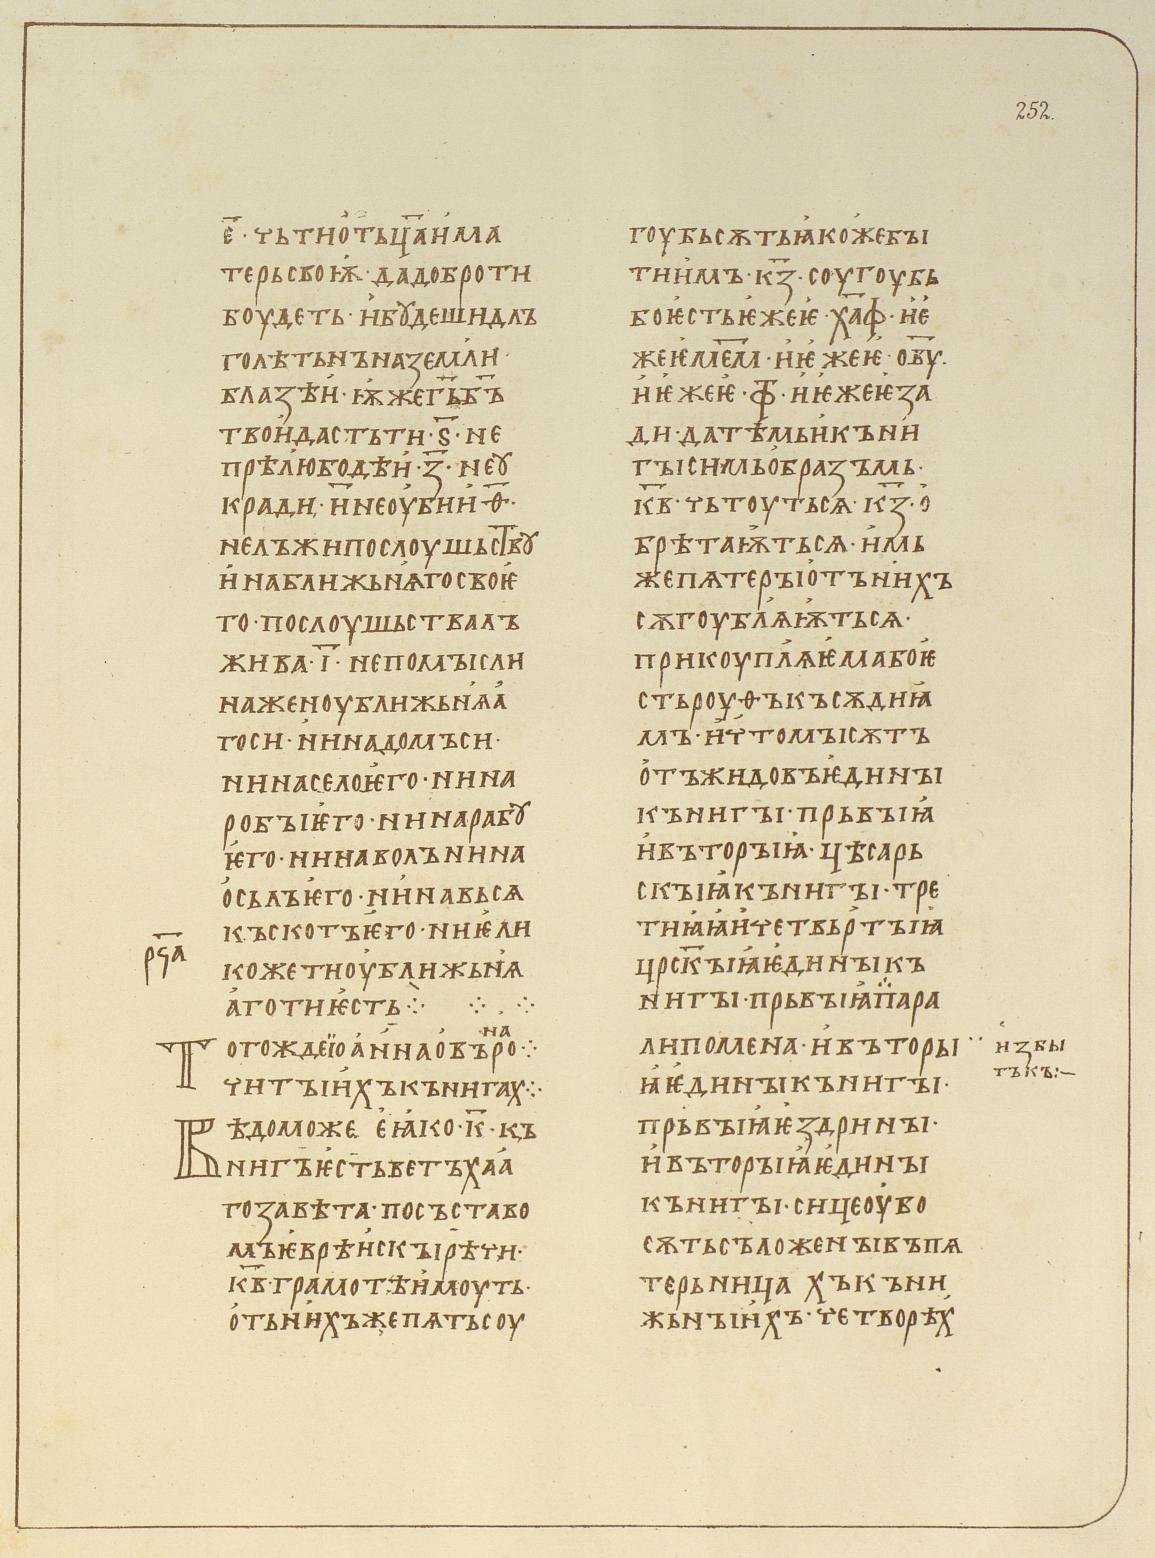 252.
е҃ · чьти о́тьца҃ и́ ма
терь своѭ · да добро ти
боудеть · и́ бꙋдеши дл҄ъ
голѣтьнъ на земл҄и ·
блазѣи́ · ѭже г҃ь б҃ъ
твои́ дасть ти · ѕ҃ · не
прѣлюбодѣи́ · з҃ · не ꙋ
кради · и҃ не оу́бии́ · ѳ҃ ·
не лъжи послоушьств҃ꙋ
и́ на ближьнꙗ́го своѥ́
го · послоушьства лъ
жива · і҃ · не помысли
на женоу ближьнѧ́а́
го си · ни на домъ си ·
ни на село ѥ́го · ни на
робы ѥ́го · ни на рабꙋ
ѥ́го · ни на волъ ни на
о́сьлъ ѥ́го · ни́ на вьсѧ
къ скотъ ѥ́го · ни ѥ́ли
р҃ч҃а
коже ти оу́ ближьнѧ́
а́го ти ѥ́сть ⁘ ⁘ ⁘
Тогожде їоа́нна о́ въро ⁘
на
читыи́хъ кънигах ⁘
Вѣдомо же е́ ꙗко · к҃ · къ
нигъ ѥ́сть ветъхаа́
го завѣта · по съставо
мъ ѥ́врѣи́скъі рѣчи ·
к҃в · грамотѣ и́моуть ·
о́ть ни́хъже пѧть соу
гоубь сѫть ꙗко́же бы
ти и́мъ · к҃з · соугоубь
бо ѥ́сть ѥ́же ѥ́ · ха҃ф · и́ е́
же ѥ́ ме҃м · и́ ѥ́же ѥ́ · о҃вꙋ.
и́ ѥ́же ѥ́ · ф҃ · и́ ѥ́же ѥ́ за
ди · да тѣ́мь и́ къни
гы симь о́бразъмь ·
к҃в · чьтоуться · к҃з · о́
брѣтаѭ́ться · и́мь
же пѧтеры о́тъ ни́хъ
сѫгоублꙗѭ́тьсѧ ·
прикоупл҄ꙗѥ́ма бо ѥ́
сть роуѳъ къ сѫдиꙗ́
мъ · и́ чь́томы сѫтъ
о́тъ жидовъ ѥ́дины
кънигы · прьвыꙗ́
и́ въторыꙗ́ · цѣсарь
скыꙗ́ кънигы · тре
тиꙗ́ꙗ́ и́ четвьртыꙗ́
црс҃кыꙗ́ ѥ́дины къ
нигы · прьвыꙗ́ пара
липомена · и́ въторы
и́збы
тъкъ:—
ꙗ́ ѥ́дины кънигы ·
прьвыꙗ́ ѥ́здрины ·
и́ въторыꙗ́ ѥ́дины
кънигы · сице оу́бо
сѫть съложены въ пѧ
терьница хъ къни
жьныи́хъ · четворѣх